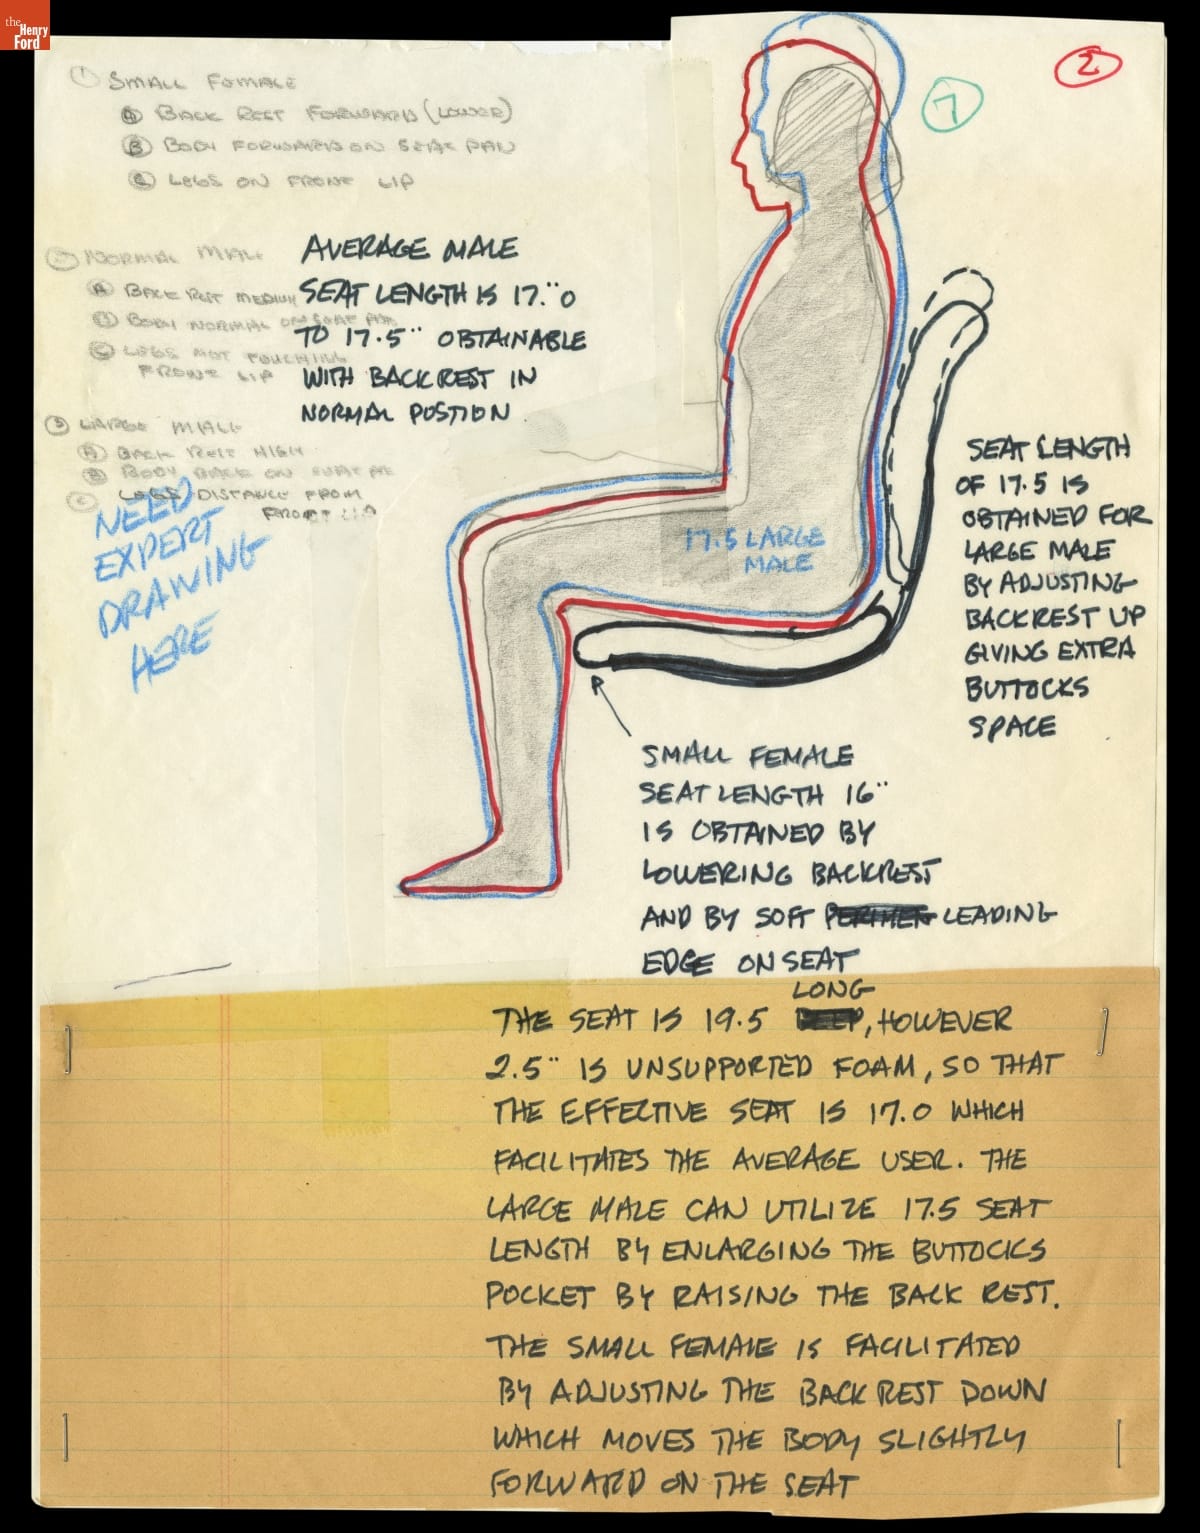 the
Henry
Ford
2
7
1 SMALL FEMALE
A BACK REST FORWARD (LOWER)
B BODY FORWARD ON SEAT PAN
C LEGS ON FRONT LIP
2 NORMAL MALE
A BACK REST MEDIUM
B BODY NORMAL ON SEAT PAN
C LEGS NOT TOUCHING
FRONT LIP
3 LARGE MALE
A BACK REST HIGH
B BODY BACK ON SEAT
C LEGS DISTANCE FROM
FRONT LIP
AVERAGE MALE
SEAT LENGTH IS 17."0
TO 17.5" OBTAINABLE
WITH BACKREST IN
NORMAL POSTION
NEED
EXPERT
DRAWING
HERE
17.5 LARGE
MALE
SEAT LENGTH
OF 17.5 IS
OBTAINED FOR
LARGE MALE
BY ADJUSTING
BACKREST UP
GIVING EXTRA
BUTTOCKS
SPACE
SMALL FEMALE
SEAT LENGTH 16"
IS OBTAINED BY
LOWERING BACKREST
AND BY SOFT LEADING
EDGE ON SEAT
LONG
THE SEAT IS 19.5 DEEP, HOWEVER
2.5" IS UNSUPPORTED FOAM, SO THAT
THE EFFECTIVE SEAT IS 17.0 WHICH
FACILITATES THE AVERAGE USER. THE
LARGE MALE CAN UTILIZE 17.5 SEAT
LENGTH BY ENLARGING THE BUTTOCKS
POCKET BY RAISING THE BACK REST.
THE SMALL FEMALE IS FACILITATED
BY ADJUSTING THE BACK REST DOWN
WHICH MOVES THE BODY SLIGHTLY
FORWARD ON THE SEAT